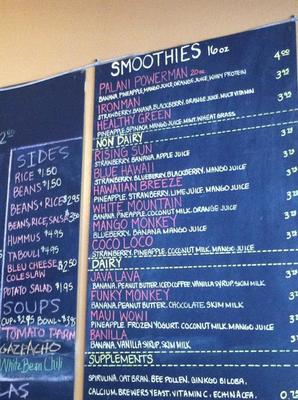 2.50
SIDES
RICE $1.50
BEANS $1.50
BEANS & RICE $2.95
BEANS, RICE, SALSA
HUMMUS $4.95
TABOULI $4.95
BLEU CHEESE $2.50
COLE SLAW
POTATO SALAD $1.95
SOUPS
CUP- $2.95 BOWL-
TOMATO PARM
GAZPACHO
White Bean Chili
LAS
SMOOTHIES 16oz
PALANI POWERMAN 20oz 4.50
BANANA, PINEAPPLE, MANGO JUICE, ORANGE JUICE, WHEY PROTEIN
IRONMAN 3.95
STRAWBERRY, BANANA, BLACKBERRY, ORANGE JUICE, MULTI VITAMIN
HEALTHY GREEN 3.95
PINEAPPLE, SPINACH, MANGO JUICE, MINT, WHEAT GRASS
NON DAIRY
RISING SUN 3.95
STRAWBERRY, BANANA, APPLE JUICE
BLUE HAWAII 3.95
STRAWBERRY, BLUEBERRY, BLACKBERRY, MANGO JUICE
HAWAIIAN BREEZE 3.95
PINEAPPLE, STRAWBERRY, LIME JUICE, MANGO JUICE
WHITE MOUNTAIN 3.95
BANANA, PINEAPPLE, COCONUT MILK, ORANGE JUICE
MANGO MONKEY 3.95
BLUEBERRY, BANANA, MANGO JUICE
COCO LOCO 3.95
STRAWBERRY, PINEAPPLE, COCONUT MILK, MANGO JUICE
DAIRY
JAVA LAVA 3.95
BANANA, PEANUT BUTTER, ICED COFFEE, VANILLA SYRUP, SKIM MILK
FUNKY MONKEY 3.95
BANANA, PEANUT BUTTER, CHOCOLATE, SKIM MILK
MAUI WOWI 3.95
PINEAPPLE, FROZEN YOGURT, COCONUT MILK, MANGO JUICE
BANILLA 3.95
BANANA, VANILLA SYRUP, SKIM MILK
SUPPLEMENTS
SPIRULINA, OAT BRAN, BEE POLLEN, GINKGO BILOBA,
CALCIUM, BREWERS YEAST, VITAMIN C, ECHINACEA